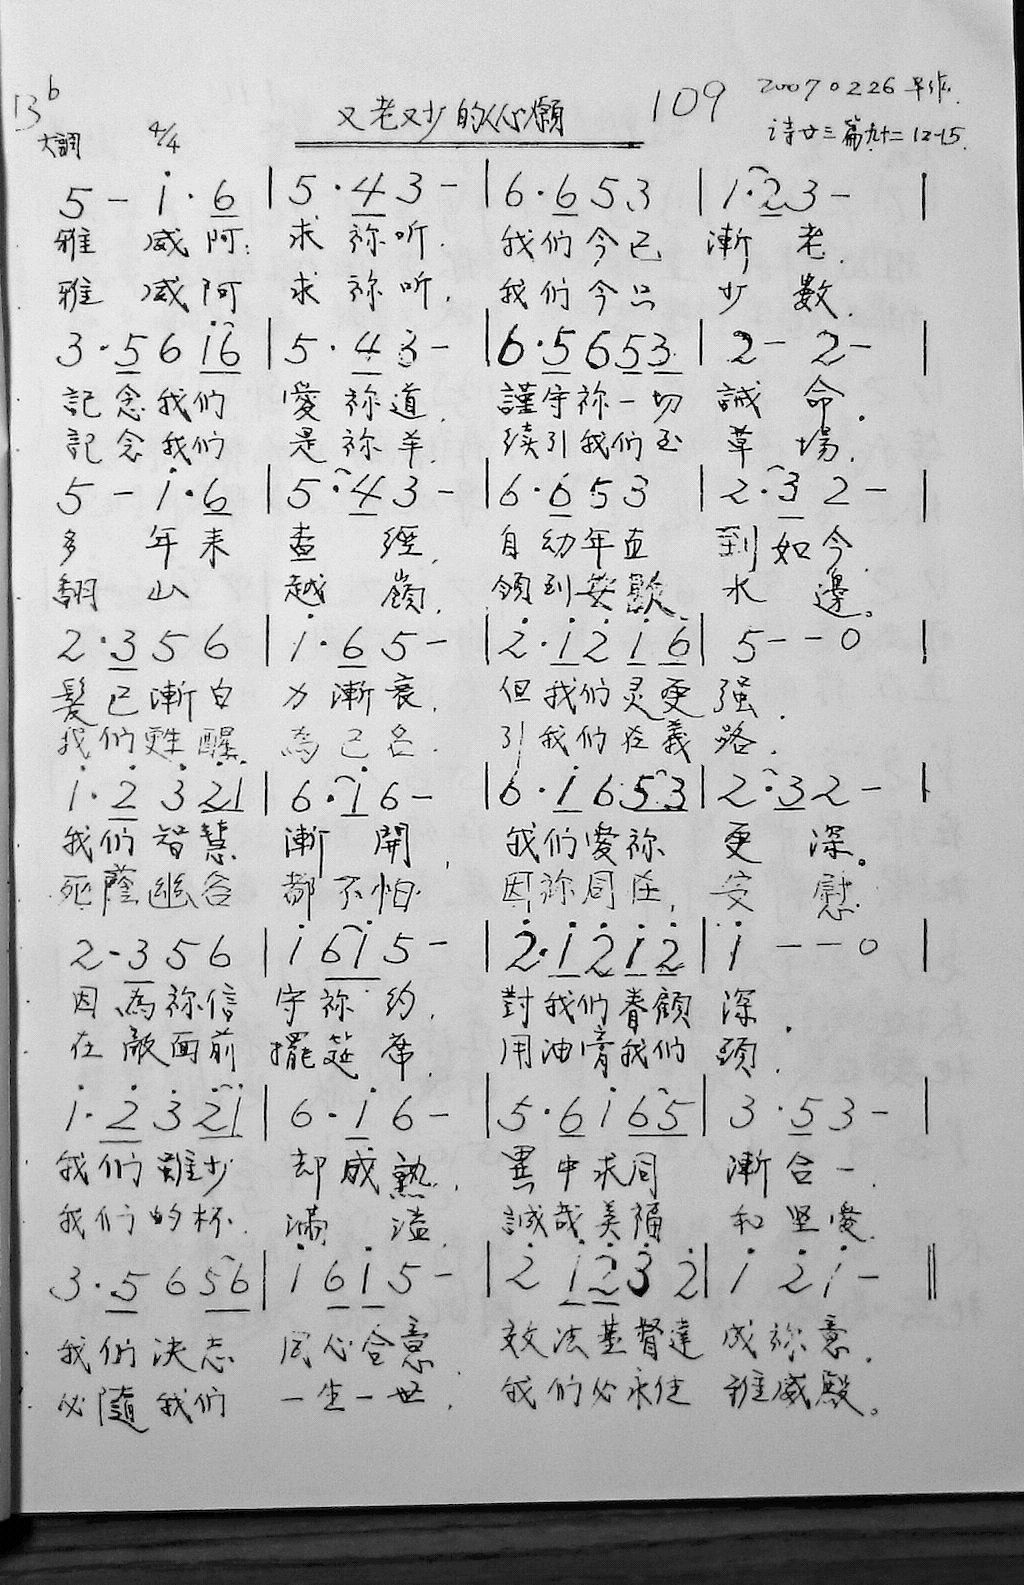 又老又少的心願 109 20070226 早作.
B♭大調 4/4 诗廿三篇九十二 12-15.
5 - i · 6 | 5 · 4 3 - | 6 · 6 5 3 | 1 · 2 3 - |
雅 威 阿: 求 祢 听. 我们今已 漸 老.
雅 威 阿 求 祢 听. 我们今只 少 數.
3 · 5 6 i6 | 5 · 4 3 - | 6 · 5 6 53 | 2 - 2 - |
記念我们 愛祢道. 謹守祢一切 誡 命.
記念我们 是祢羊. 续引我们至 草 場.
5 - i · 6 | 5 · 4 3 - | 6 · 6 5 3 | 2 · 3 2 - |
多 年 来 查 經. 自幼年直 到如今.
翻 山 越 嶺. 领到安歇 水 邊。
2 · 3 5 6 | i · 6 5 - | 2 · i 2 i 6 | 5 - - 0 |
髮已漸白 力漸衰. 但我们灵更 强.
我们甦醒. 為己名. 引我们在義 路.
i · 2 3 2i | 6 · i 6 - | 6 · i 6 53 | 2 · 3 2 - |
我们智慧 漸 開, 我们愛祢 更 深。
死蔭幽谷 都不怕. 因祢同在, 安 慰.
2 · 3 5 6 | i 6i 5 - | 2 · i 2 i 2 | i - - 0 |
因為祢信 守祢 約. 對我们眷顧 深.
在敵面前 擺筵 席. 用油膏我们 頭.
i · 2 3 2i | 6 · i 6 - | 5 · 6 i 65 | 3 · 5 3 - |
我们雖少 却成熟. 異中求同 漸合一.
我们的杯. 滿 溢. 誠哉美福 和坚愛.
3 · 5 6 56 | i 6 i 5 - | 2 i 2 3 2 | i 2 i - ‖
我们决志 同心合意. 效法基督達 成祢意.
必隨我们 一生一世. 我们必永住 雅威殿。